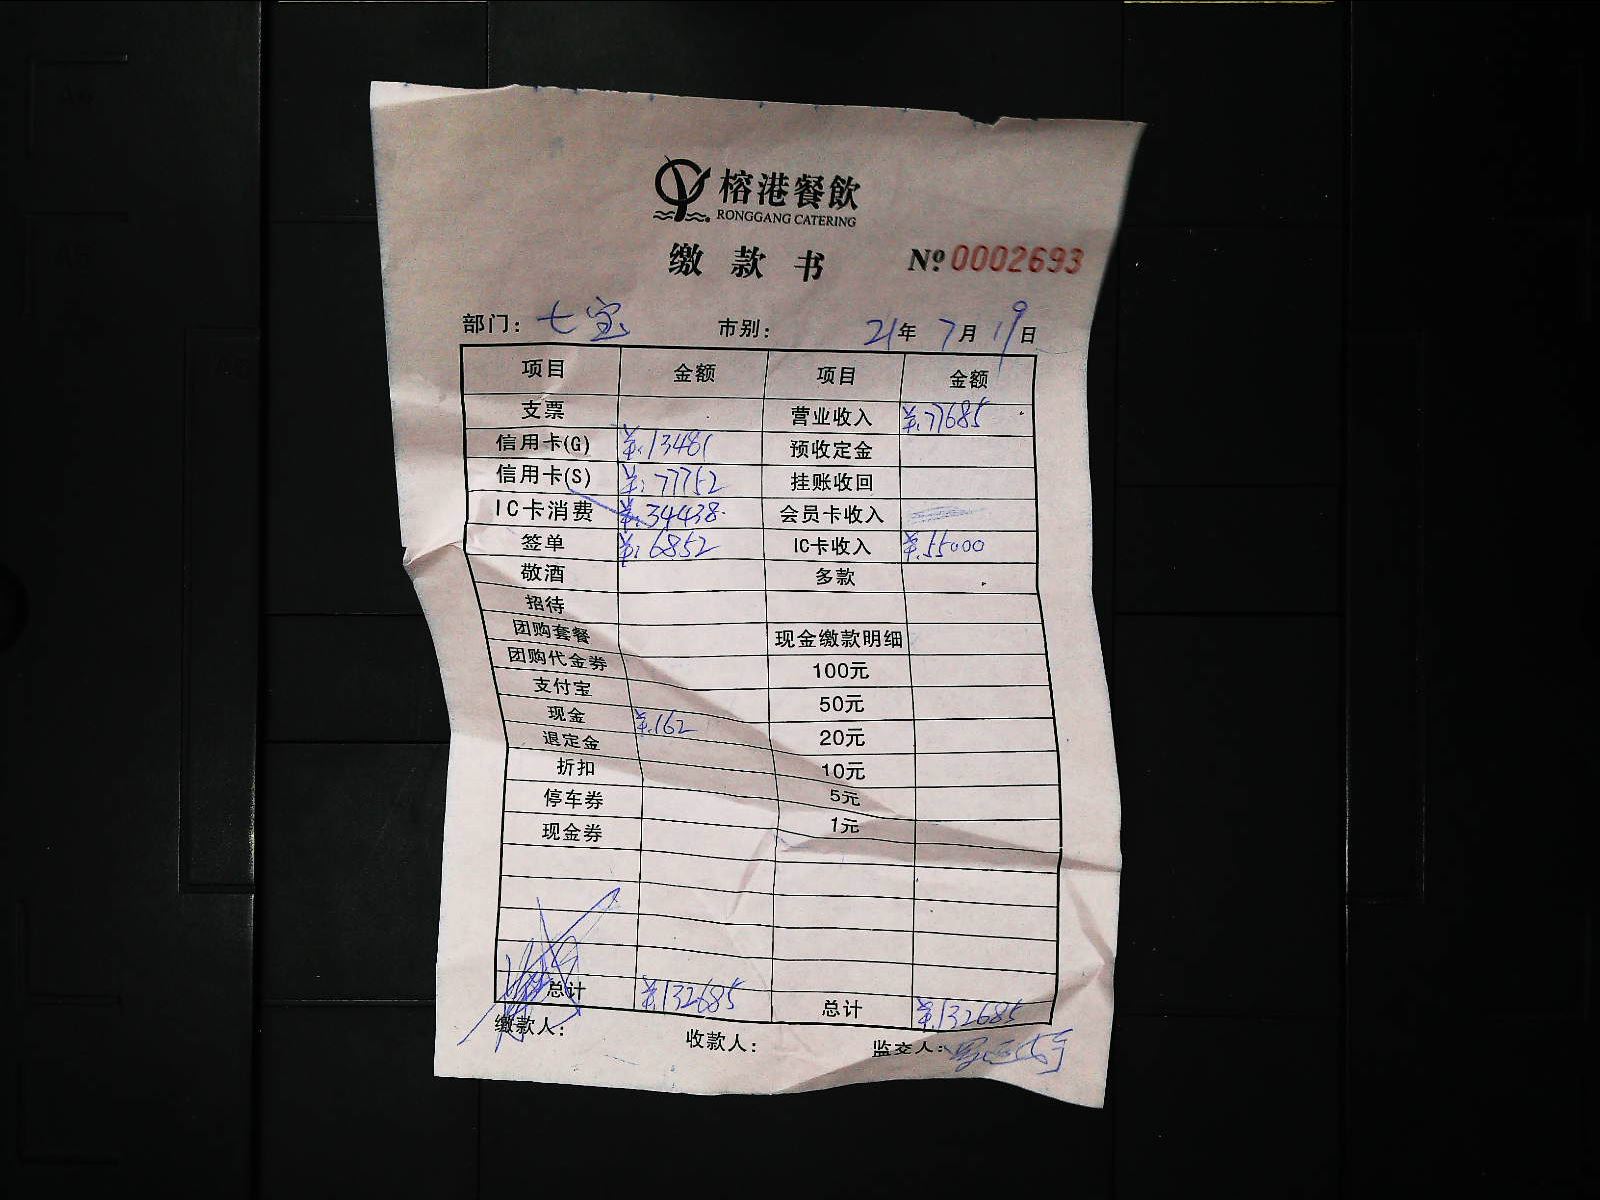 榕港餐飲
RONGGANG CATERING
缴款书 № 0002693
部门: 七宝 市别: 21年 7月 19日
项目 金额 项目 金额
支票 营业收入 ¥:77685
信用卡(G) ¥:13481 预收定金
信用卡(S) ¥:77752 挂账收回
IC卡消费 ¥:34438 会员卡收入
签单 ¥:6852 IC卡收入 ¥:55000
敬酒 多款
招待
团购套餐 现金缴款明细
团购代金券 100元
支付宝 50元
现金 ¥:162 20元
退定金 10元
折扣 5元
停车券 1元
现金券
总计 ¥:132685 总计 ¥:132685
缴款人: 收款人: 监交人: